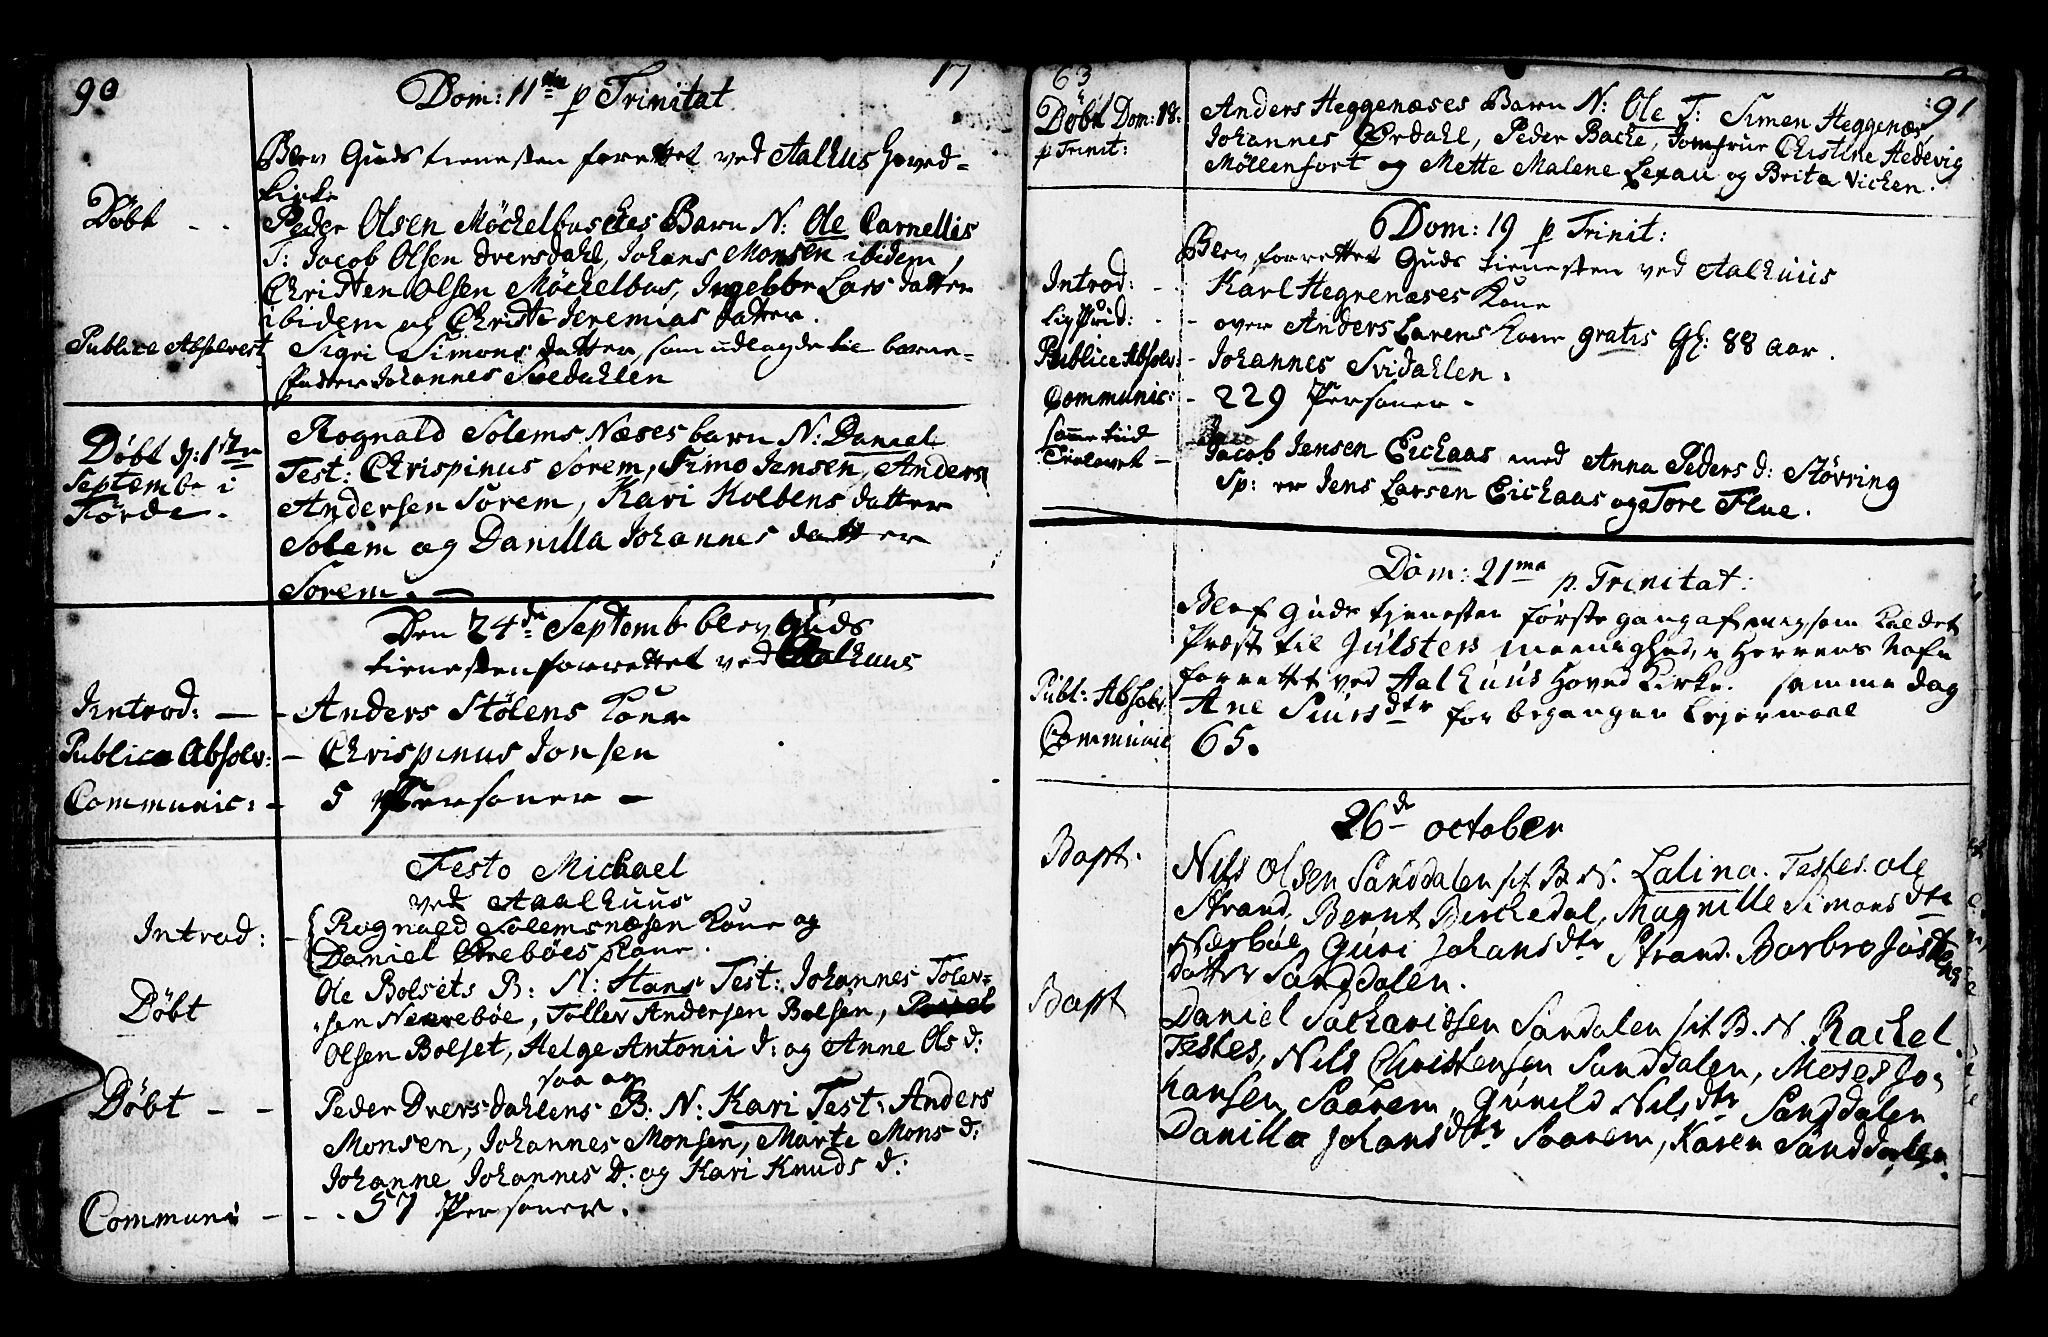 90
17
Dom: 11te p Trinitat
Blev Guds tienesten forettet ved Aalhus hoved-
kirke
Døbt - - Peder Olsen Möckelbusches Barn N: Ole Carnellis
T: Jacob Olsen Dversdahl, Johans Monsen ibidem,
Christen Olsen Möckelbus, Ingebbr Lars datter
ibidem og Christi Jeremias datter.
Publice Absolvert Sigri Simons datter, som udlagde til barne-
fader Johannes Svedahlen
Døbt d: 1ste Rognald Solems Næses barn N: Daniel
Septembr i Test: Chrispinus Sorem, Simo Jensen, Anders
Förde. Andersen Sorem, Kari Kolbens datter
Solem og Danilla Johannes datter
Sorem. -
Den 24de Septemb blev Guds
tienesten forrettet ved Aalhuus
Introd: - - Anders Stölens Kone
Publice Absolv: - Chrispinus Jonsen
Communic: - 5 Personer -
Festo Michael
ved Aaalhuus
Introd: - Rognald Solemsnæsen Kone og
Daniel Örebøes Kone.
Døbt Ole Bolsets B: N: Hans Test: Johannes Tolev-
sen Nerrebøe, Tollev Andersen Bolsen,
Olsen Bolset, Helge Antonii d: og Anne Ols d:
saa og
Døbt - - Peder Dversdahlens B: N: Kari Test: Anders
Monsen, Johannes Monsen, Marte Mons d:
Johanne Johannes D: og Kari Knuds d:
Communi - - - 57 Personer.
63
:91
Døbt Dom: 18: Anders Heggenæses Barn N: Ole T: Simen Heggenæs,
p Trinit: Johannes Ørdahl, Peder Backe, Jomfrue Christine Hedevig
Möllenfort og Mette Malene Lexau og Brita Vicken.
Dom: 19 p Trinit:
Blev forrettet Guds tienesten ved Aalhuus
Introd: - - Karl Hegrenæses Kone
Ligprid: - - over Anders Larens Kone gratis Gl: 88 aar.
Publice Absolv: - Johannes Svidahlen.
Communic: - 229 Personer -
samme tiid
Trolovet - Jacob Jensen Eichaas med Anna Peders d: Støvring
Sp: er Jens Larsen Eichaas og Tore Flue.
Dom: 21ma p. Trinitat:
Blef Guds tjenesten første gang af mig som Kaldet
Præst til Jülsters meenighed, i Herrens Nafn
forrettet ved Aalhuus Hoved Kirke. samme dag
Publ: Absolv: Ane Siursdtr for begangen Lejermaal
Communic 65.
26de october
Bapt. Nils Olsen Sanddalen sit B. N. Lalina. Testes. Ole
Strand, Bernt Birchedal, Magnille Simons dtr
Nærbøe, Guri Johans dtr Strand. Barbro Jostens
datter Sanddalen.
Bapt Daniel Sachariesen Sandalen sit B. N. Rachel.
Testes, Nils Christensen Sanddalen, Moses Jo-
hansen Saarem, Gunild Nils dtr Sanddalen
Danilla Johans dtr Saarem, Karen Sanddalen.